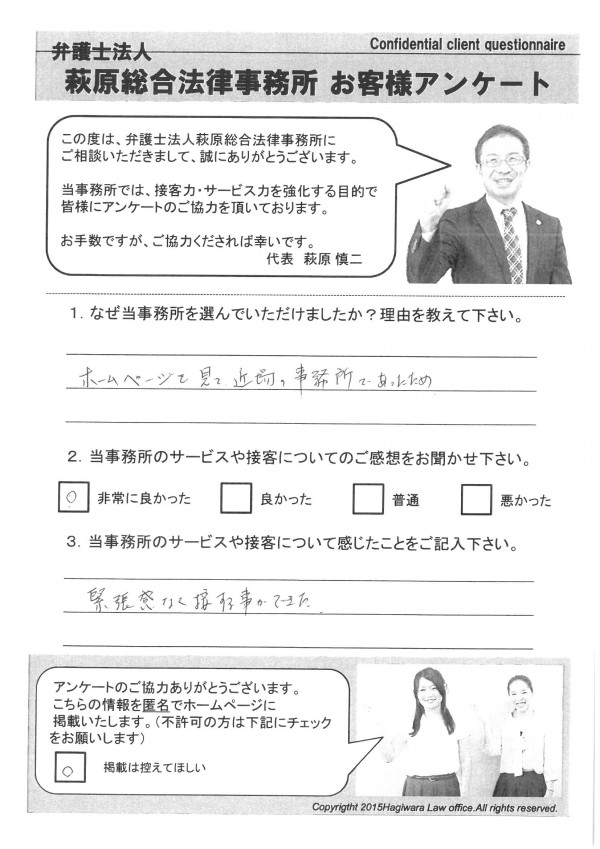 Confidential client questionnaire
弁護士法人
萩原総合法律事務所 お客様アンケート
この度は、弁護士法人萩原総合法律事務所に
ご相談いただきまして、誠にありがとうございます。
当事務所では、接客力・サービス力を強化する目的で
皆様にアンケートのご協力を頂いております。
お手数ですが、ご協力くだされば幸いです。
代表 萩原 慎二
1. なぜ当事務所を選んでいただけましたか？理由を教えて下さい。
ホームページを見て、近所の事務所であったため
2. 当事務所のサービスや接客についてのご感想をお聞かせ下さい。
○ 非常に良かった 良かった 普通 悪かった
3. 当事務所のサービスや接客について感じたことをご記入下さい。
緊張感なく接する事ができた。
アンケートのご協力ありがとうございます。
こちらの情報を匿名でホームページに
掲載いたします。（不許可の方は下記にチェック
をお願いします）
○ 掲載は控えてほしい
Copyritght 2015Hagiwara Law office.All rights reserved.